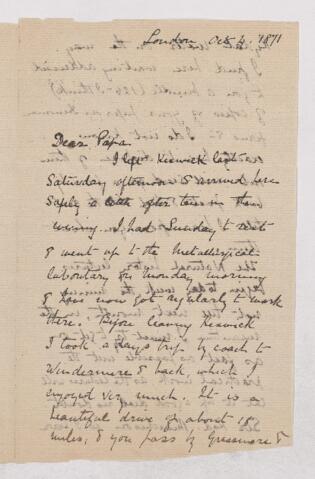 London Oct 4, 1871
Dear Papa
I left Keswick last
Saturday afternoon & arrived here
safely a little after ten in the
evening. I had Sunday to rest
& went up to the Metallurgical
laboratory on Monday morning
& have now got regularly to work
there. Before leaving Keswick
I took a day's trip by coach to
Windermere & back, which I
enjoyed very much. It is a
beautiful drive of about 18
miles, & you pass by Grassmere &